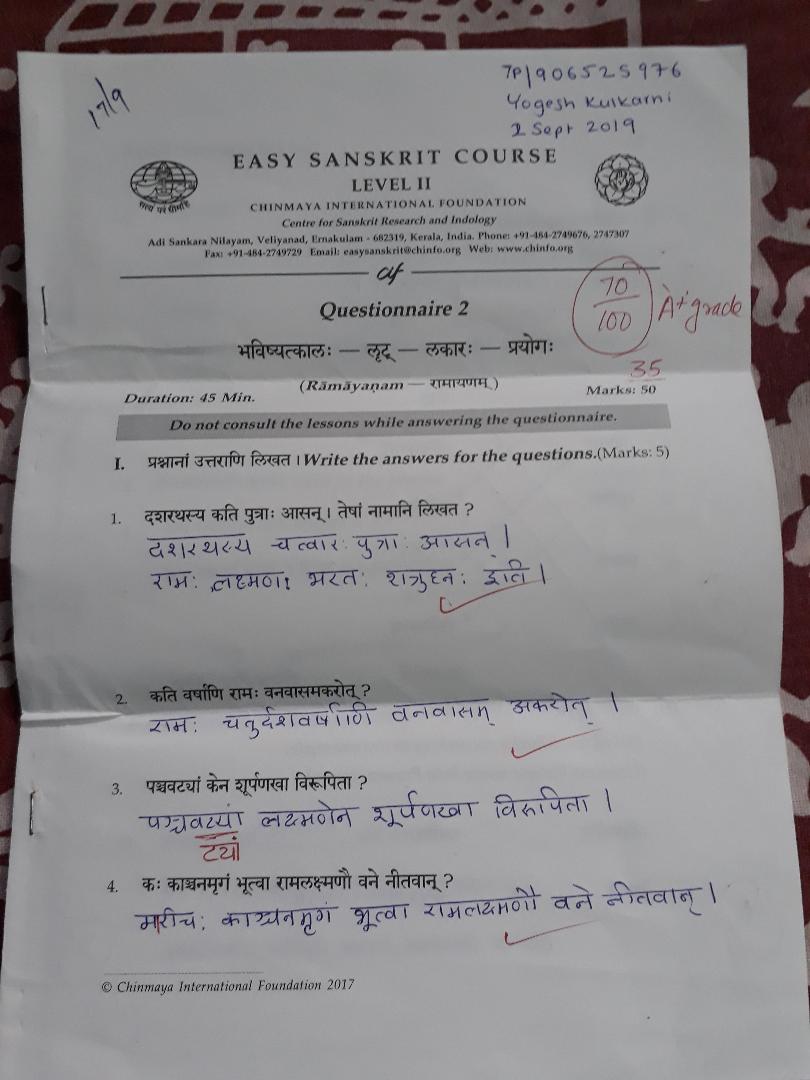 17/9
TP/906525976
Yogesh Kulkarni
2 Sept 2019
EASY SANSKRIT COURSE
LEVEL II
CHINMAYA INTERNATIONAL FOUNDATION
Centre for Sanskrit Research and Indology
Adi Sankara Nilayam, Veliyanad, Ernakulam - 682319, Kerala, India. Phone: +91-484-2749676, 2747307
Fax: +91-484-2749729 Email: easysanskrit@chinfo.org Web: www.chinfo.org
cif
Questionnaire 2
70
100
A+ grade
भविष्यत्कालः — लृट् — लकारः — प्रयोगः
(Rāmāyaṇam — रामायणम्)
35
Duration: 45 Min.
Marks: 50
Do not consult the lessons while answering the questionnaire.
I. प्रश्नानां उत्तराणि लिखत । Write the answers for the questions.(Marks: 5)
1. दशरथस्य कति पुत्राः आसन् । तेषां नामानि लिखत ?
दशरथस्य चत्वारः पुत्राः आसन् ।
रामः लक्ष्मणः भरतः शत्रुघ्नः इति ।
2. कति वर्षाणि रामः वनवासमकरोत् ?
रामः चतुर्दशवर्षाणि वनवासम् अकरोत् ।
3. पञ्चवट्यां केन शूर्पणखा विरूपिता ?
पञ्चवटयां लक्ष्मणेन शूर्पणखा विरुपिता ।
ट्यां
4. कः काञ्चनमृगं भूत्वा रामलक्ष्मणौ वने नीतवान् ?
मारीचः काञ्चनमृगं भूत्वा रामलक्ष्मणौ वने नीतवान् ।
© Chinmaya International Foundation 2017